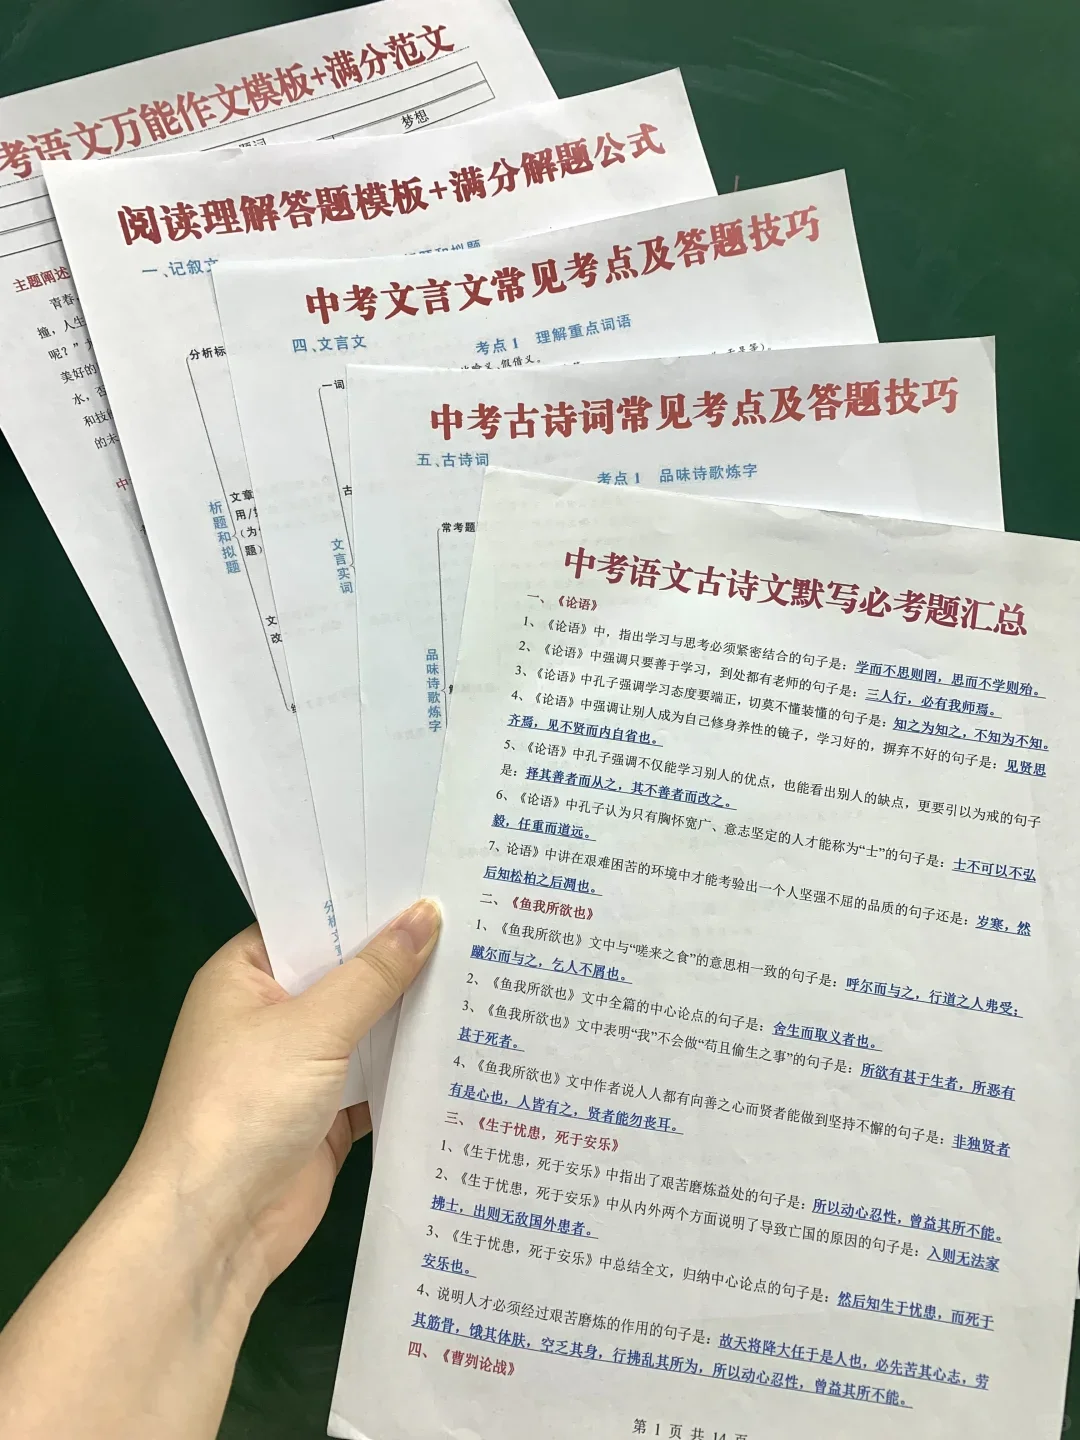 考语文万能作文模板+满分范文
梦想
主题阐述
青春
撞，人生
呢？”
美好的
水，否
和技
的未
中
阅读理解答题模板+满分解题公式
一、记叙文
分析标
文章
析题和拟题
（为
题）
文
改
中考文言文常见考点及答题技巧
四、文言文
考点1 理解重点词语
假借义。
一词
古
文言实词
中考古诗词常见考点及答题技巧
五、古诗词
考点1 品味诗歌炼字
常考题
品味诗歌炼字
中考语文古诗文默写必考题汇总
一、《论语》
1、《论语》中，指出学习与思考必须紧密结合的句子是：学而不思则罔，思而不学则殆。
2、《论语》中强调只要善于学习，到处都有老师的句子是：三人行，必有我师焉。
3、《论语》中孔子强调学习态度要端正，切莫不懂装懂的句子是：知之为知之，不知为不知。
4、《论语》中强调让别人成为自己修身养性的镜子，学习好的，摒弃不好的句子是：见贤思
齐焉，见不贤而内自省也。
5、《论语》中孔子强调不仅能学习别人的优点，也能看出别人的缺点，更要引以为戒的句子
是：择其善者而从之，其不善者而改之。
6、《论语》中孔子认为只有胸怀宽广、意志坚定的人才能称为“士”的句子是：士不可以不弘
毅，任重而道远。
7、论语》中讲在艰难困苦的环境中才能考验出一个人坚强不屈的品质的句子还是：岁寒，然
后知松柏之后凋也。
二、《鱼我所欲也》
1、《鱼我所欲也》文中与“嗟来之食”的意思相一致的句子是：呼尔而与之，行道之人弗受；
蹴尔而与之，乞人不屑也。
2、《鱼我所欲也》文中全篇的中心论点的句子是：舍生而取义者也。
3、《鱼我所欲也》文中表明“我”不会做“苟且偷生之事”的句子是：所欲有甚于生者，所恶有
甚于死者。
4、《鱼我所欲也》文中作者说人人都有向善之心而贤者能做到坚持不懈的句子是：非独贤者
有是心也，人皆有之，贤者能勿丧耳。
三、《生于忧患，死于安乐》
1、《生于忧患，死于安乐》中指出了艰苦磨炼益处的句子是：所以动心忍性，曾益其所不能。
2、《生于忧患，死于安乐》中从内外两个方面说明了导致亡国的原因的句子是：入则无法家
拂士，出则无敌国外患者。
3、《生于忧患，死于安乐》中总结全文，归纳中心论点的句子是：然后知生于忧患，而死于
安乐也。
4、说明人才必须经过艰苦磨炼的作用的句子是：故天将降大任于是人也，必先苦其心志，劳
其筋骨，饿其体肤，空乏其身，行拂乱其所为，所以动心忍性，曾益其所不能。
四、《曹刿论战》
第 1 页 共 14 页